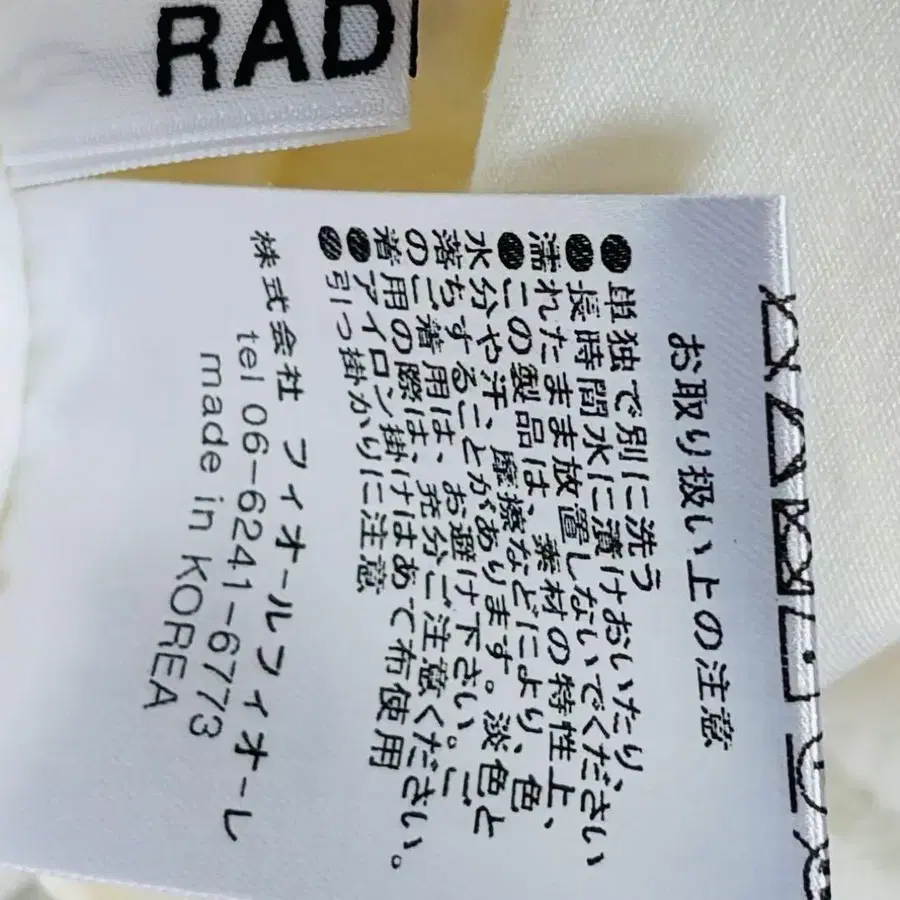 RAD
お取り扱い上の注意
●単独で別に洗う
●長時間水に漬けおいたり、
濡れたまま放置しないでください
●この製品は、素材の特性上、
水分や汗、摩擦などにより、色
落ちすることがあります。淡色と
のご着用は、お避け下さい。ご
着用の際は、充分ご注意ください。
●アイロン掛けはあて布使用
●引っ掛かりに注意
株式会社 フィオールフィオーレ
tel 06-6241-6773
made in KOREA